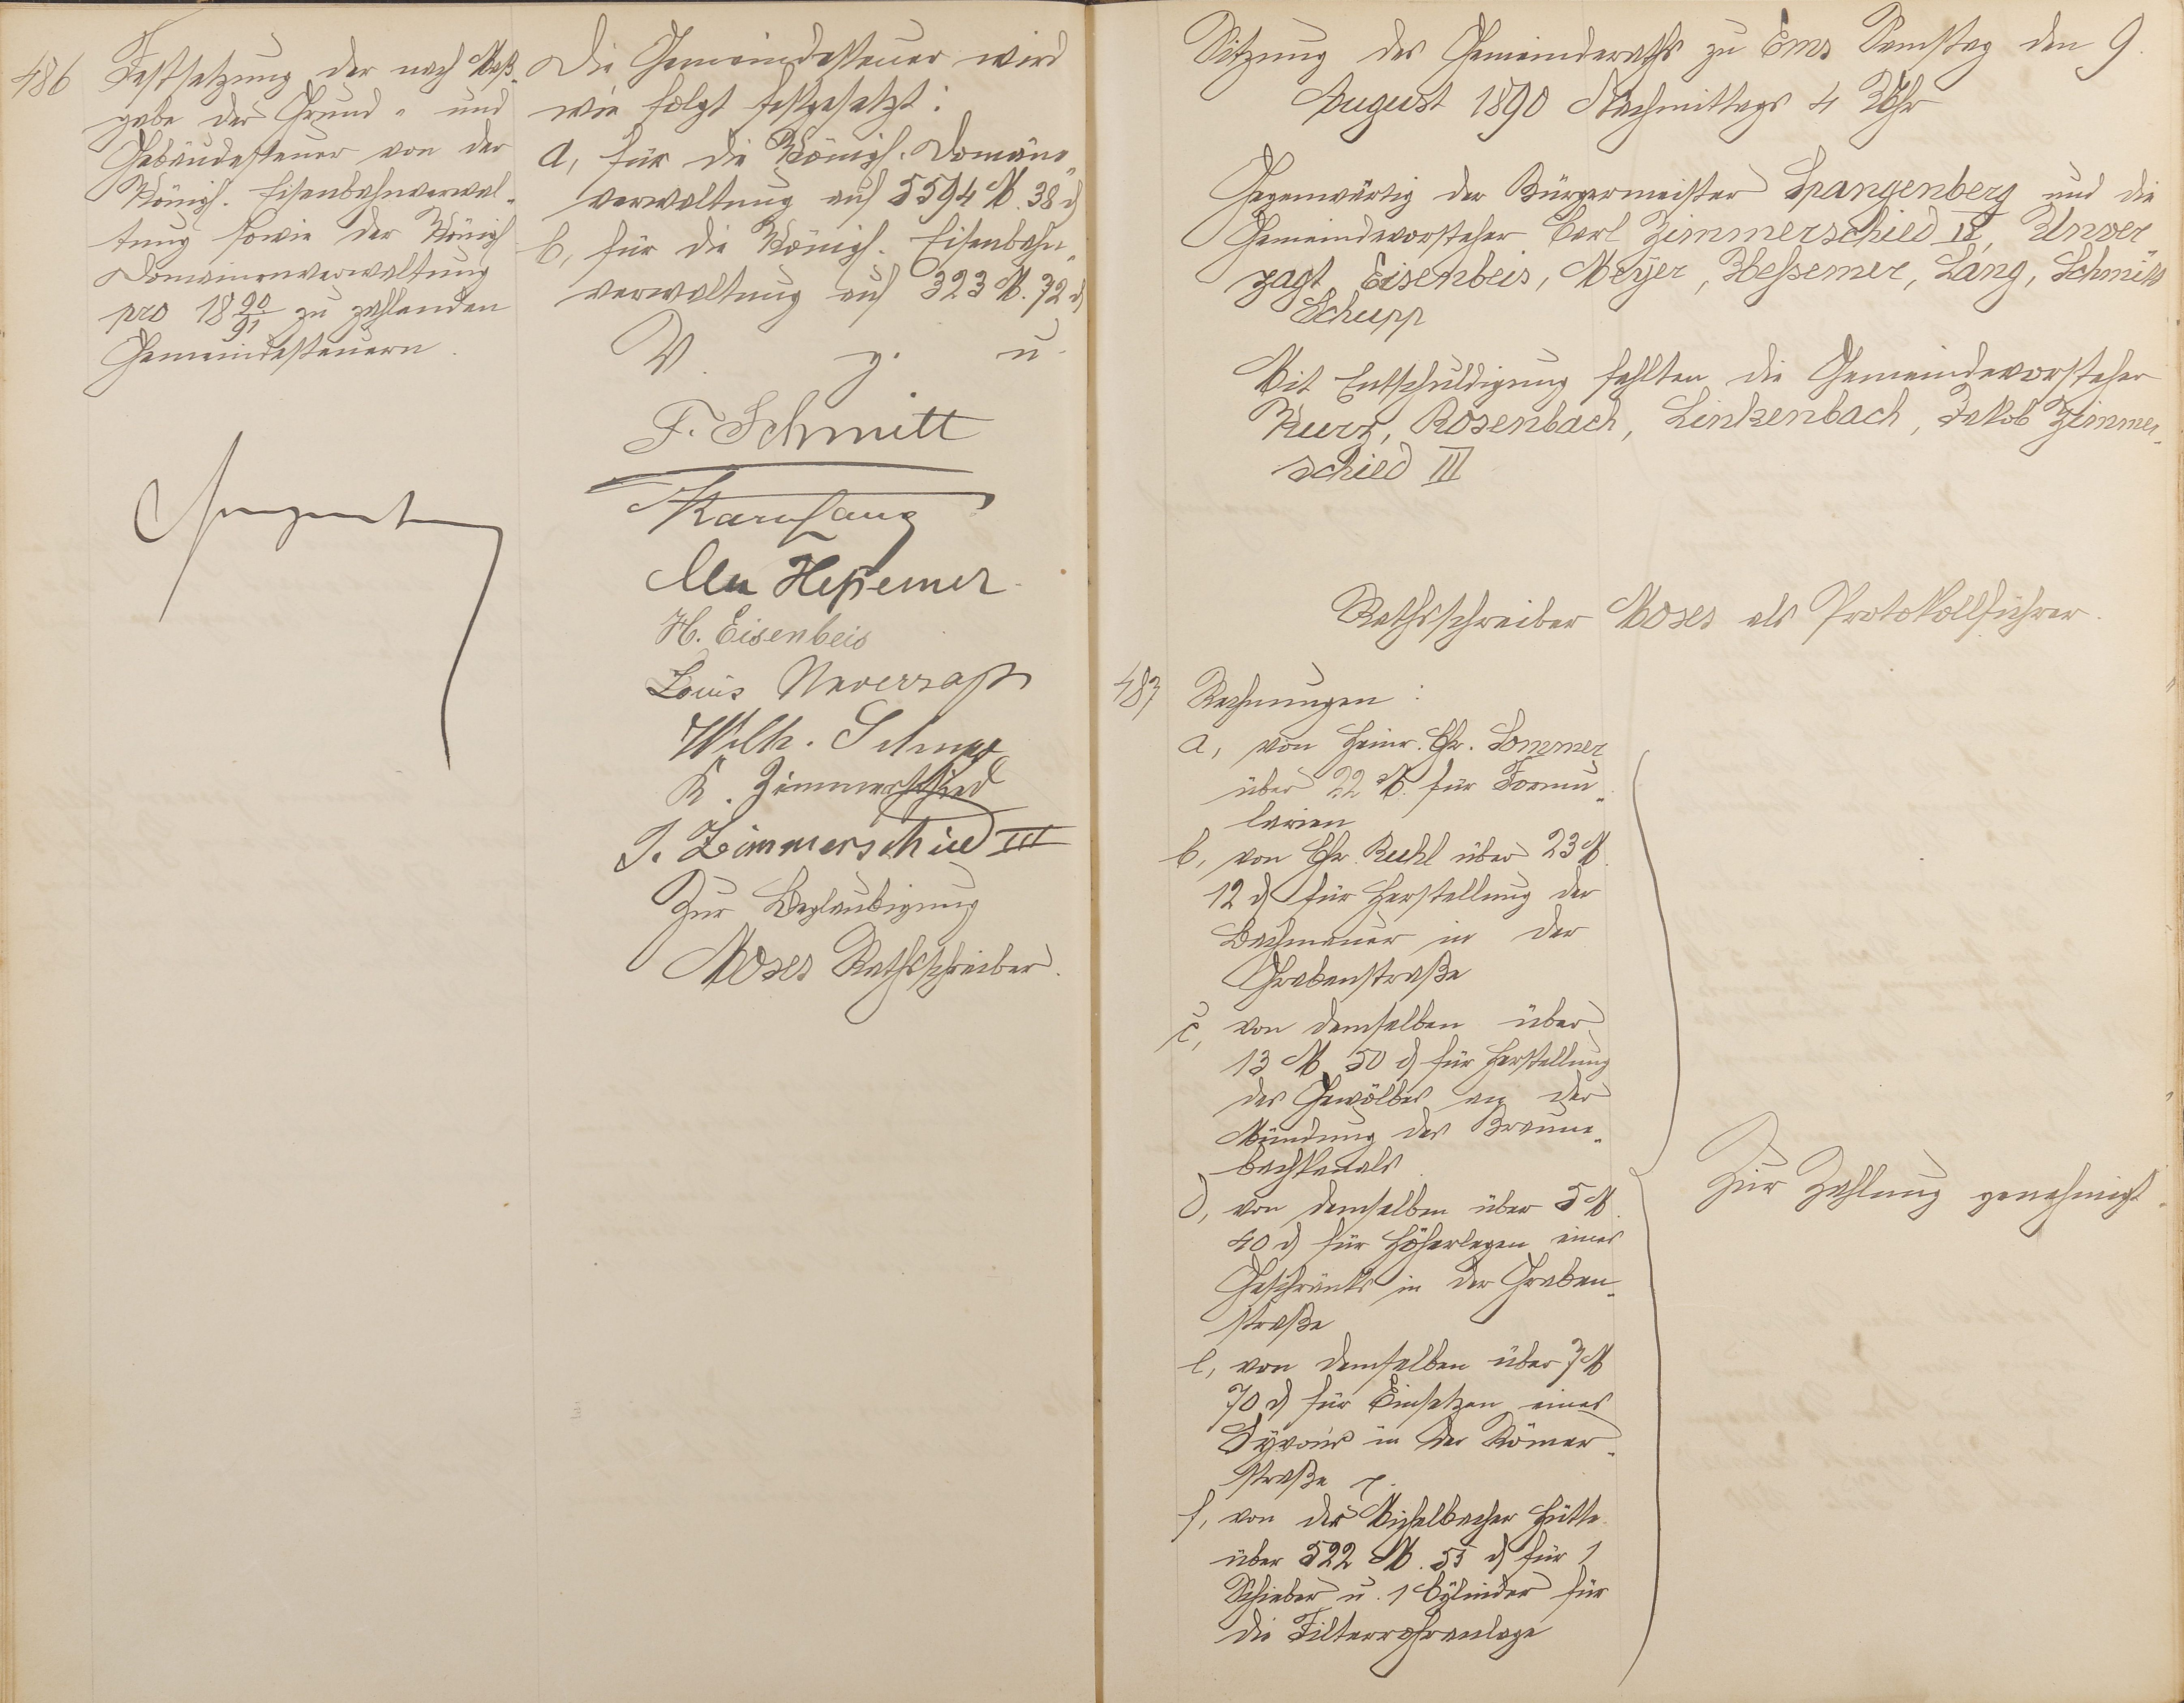 486
Festsetzung der nach Maß-
gabe der Grund- und
Gebäudesteuer von der
Königl. Eisenbahnverwal-
tung sowie der Königl
Domainenverwaltung
pro 18 90/91 zu zahlenden
Gemeindesteuern.
Spangenberg
Die Gemeindesteuer wird
wie folgt festgesetzt:
a, für die Königl. Domäne-
verwaltung auf 5594 M. 38 d
b, für die Königl. Eisenbahn-
verwaltung auf 323 M. 72 d
V. g. u.
F. Schmitt
Karl Lang
Heßemer
H. Eisenbeis
Louis Unverzagt
Wilh. Schupp
K. Zimmerschied
J. Zimmerschied III
Zur Beglaubigung
Moses Rathsschreiber.
Sitzung des Gemeinderaths zu Ems Samstag den 9.
August 1890 Nachmittags 4 Uhr
Gegenwärtig der Bürgermeister Spangenberg und die
Gemeindevorsteher Carl Zimmerschied II, Unver-
zagt Eisenbeis, Meÿer, Heßemer, Lang, Schmitt
Schupp
Mit Entschuldigung fehlten die Gemeindevorsteher
Kurz, Rosenbach, Linkenbach, Jakob Zimmer-
schied III
Rathsschreiber Moses als Protokollführer.
487 Rechnungen:
a, von Heinr. Chr. Sommer
über 22 M. für Formu-
larien
b, von Chr. Ruhl über 23 M.
12 d für Herstellung der
Bachmauer in der
Grabenstraße
c, von demselben über
13 M 50 d für Herstellung
des Gewölbes an der
Mündung des Braune-
bachkanals
d, von demselben über 5 M.
40 d für Höherlegen eines
Geschränks in der Graben-
straße
e, von demselben über 7 M
70 d für Einsetzen eines
Syvoir in der Römer-
straße
f, von der Michelbacher Hütte
über 522 M. 55 d für 1
Schieber u. 1 Cÿlinder für
die Filterrohranlage
Zur Zahlung genehmigt.